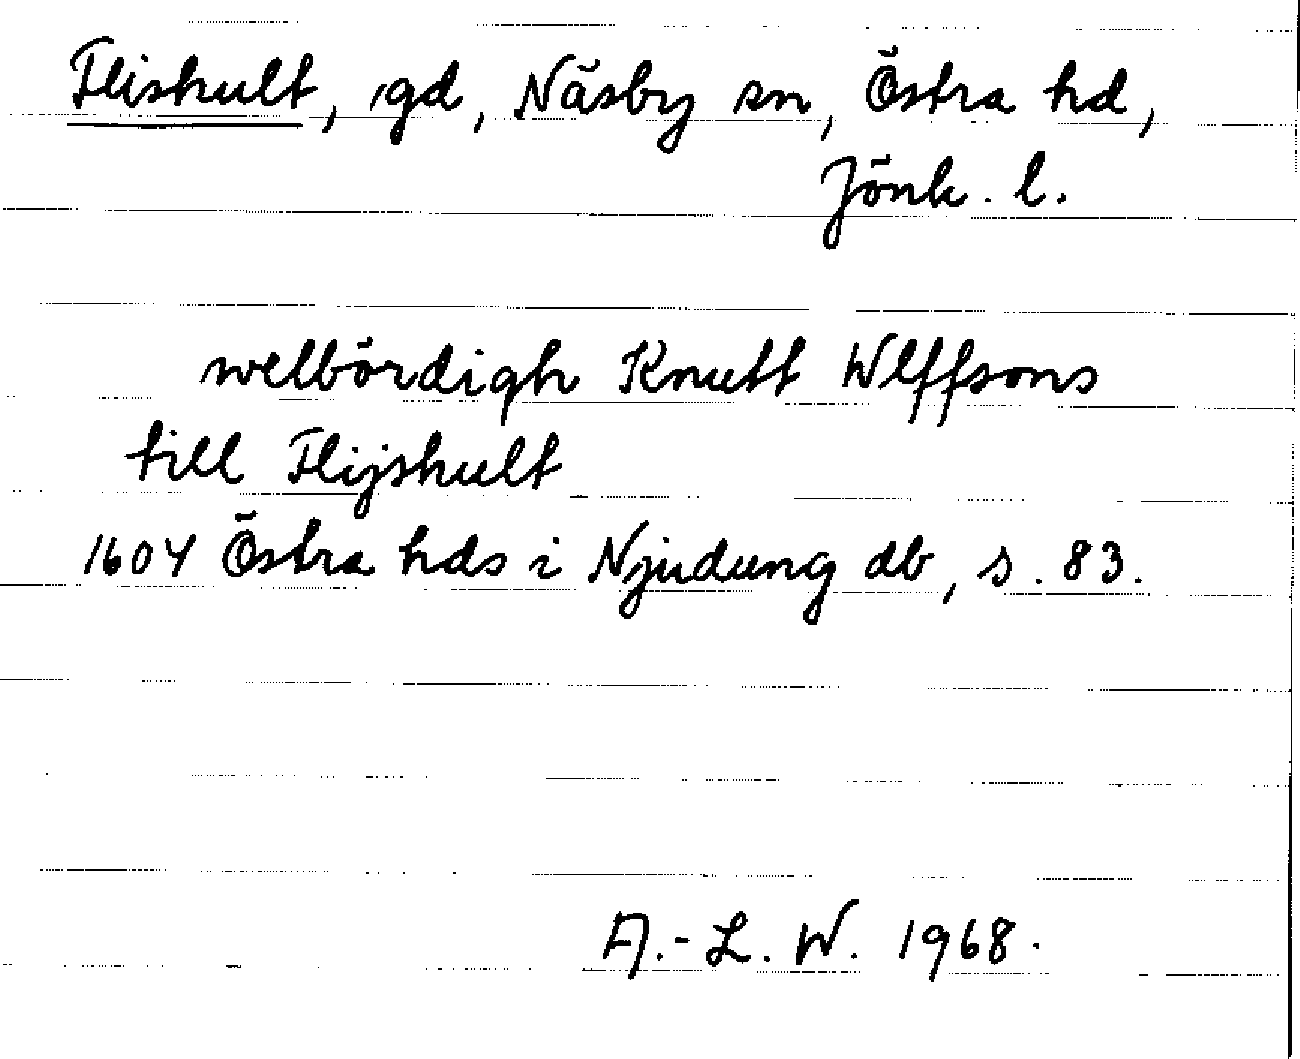 Flishult, gd, Näsby sn, Östra hd,
Jönk. l.
welbördigh Knutt Wlffsons
till Flijshult
1604 Östra hds i Njudung db, s. 83.
A.-L. W. 1968.